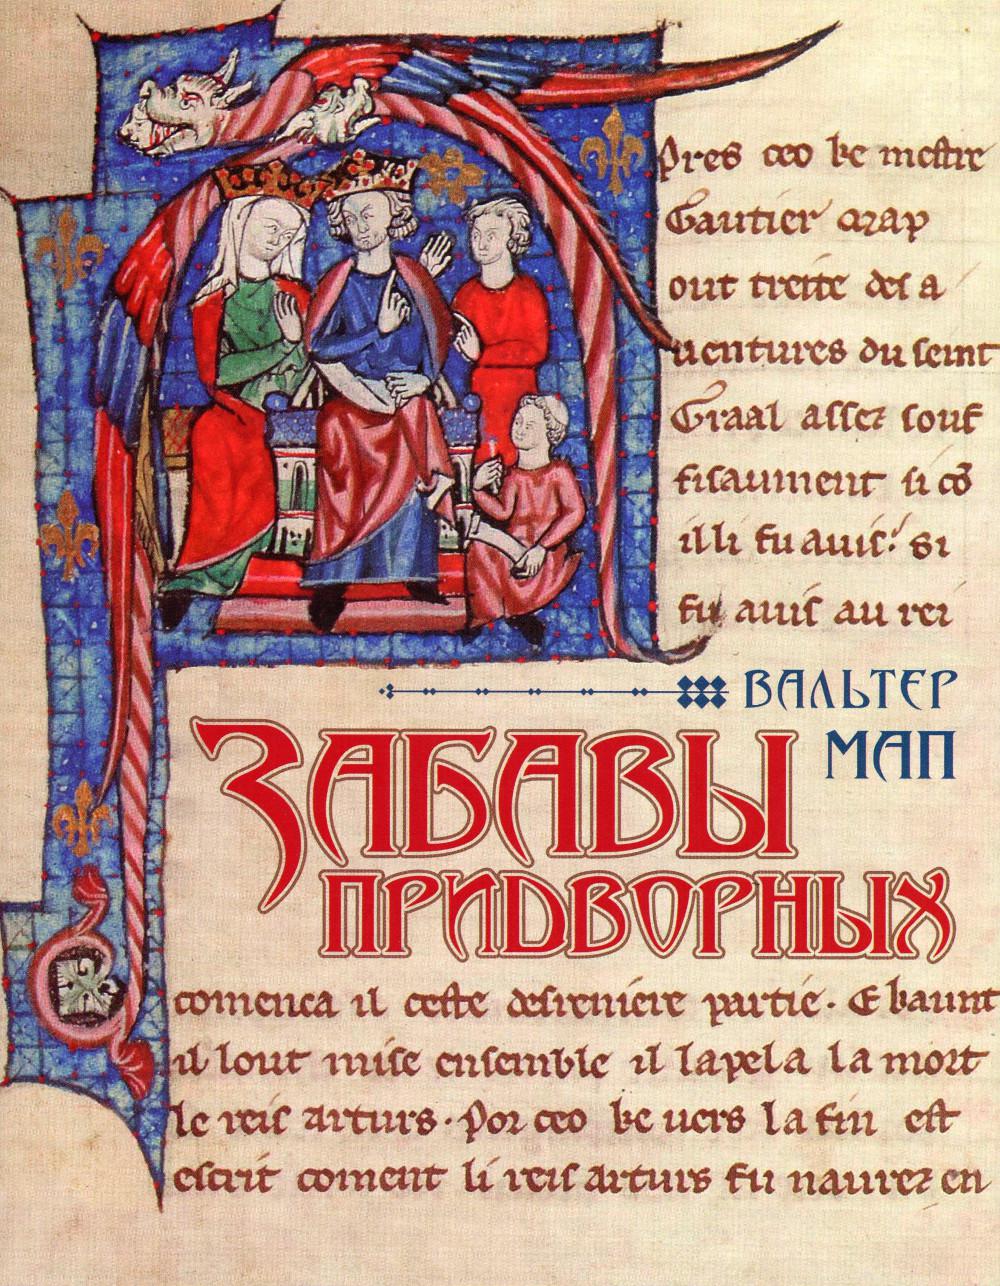 pres ceo ke mestre
Gautier map
out treite des a
uentures du seint
Graal assez souf
fisaument si cō
illi fu auis. si
fu auis au rei
ВАЛЬТЕР
МАП
ЗАБАВЫ
ПРИДВОРНЫХ
comenca il ceste desreniere partie. E kaunt
il lout mise ensemble il lapela la mort
le reis arturs. por ceo ke uers la fin est
escrit coment li reis arturs fu naurez en